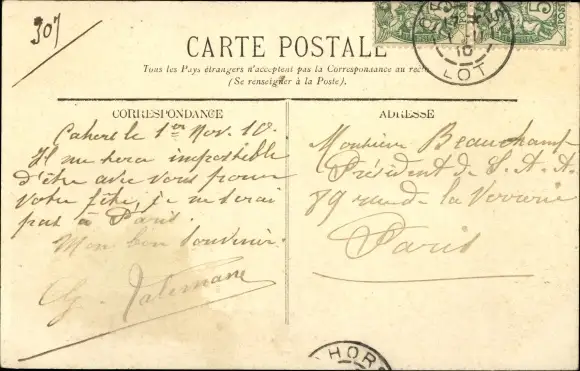 307
CARTE POSTALE
Tous les Pays étrangers n'acceptent pas la Correspondance au
(Se renseigner à la Poste).
LOT
10
5
CORRESPONDANCE
Cahors le 1er Nov. 10.
Il me sera impossible
d'être avec vous pour
votre fête, je ne serai
pas à Paris.
Mon bon Souvenir.
G.
ADRESSE
Monsieur Beauchamp
Président de S. A. A.
89 rue de la Verrerie
Paris
HORS